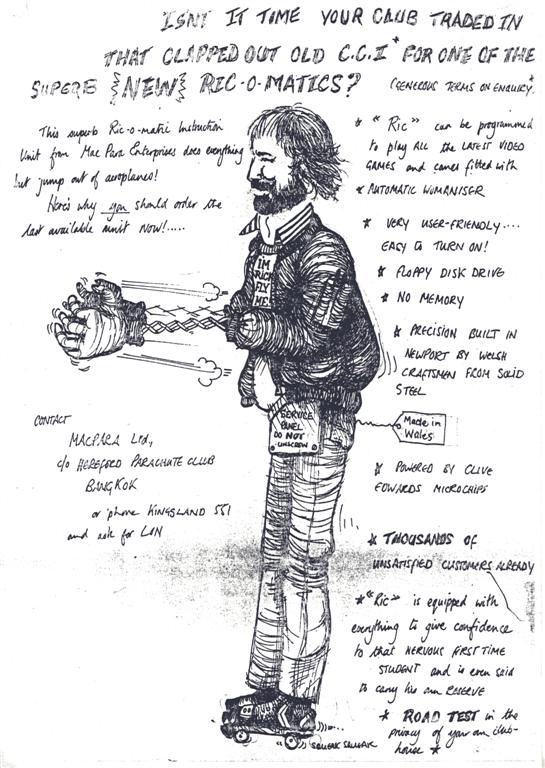 ISNT IT TIME YOUR CLUB TRADED IN
THAT CLAPPED OUT OLD C.C.I* FOR ONE OF THE
SUPERB {NEW} RIC-O-MATICS?
(GENEROUS TERMS ON ENQUIRY.*
This superb Ric-o-matic Instruction
Unit from Mac Para Enterprises does everything
but jump out of aeroplanes!
Here's why you should order the
last available unit NOW!.....
* "Ric" can be programmed
to play ALL the LATEST VIDEO
GAMES and comes fitted with
* AUTOMATIC WOMANISER
* VERY USER-FRIENDLY....
EASY to TURN ON!
* FLOPPY DISK DRIVE
* NO MEMORY
* PRECISION BUILT IN
NEWPORT BY WELSH
CRAFTSMEN FROM SOLID
STEEL
I'M
RICH
FLY
ME!
SERVICE
PANEL
DO NOT
UNSCREW
Made in
Wales
CONTACT
MACPARA Ltd.,
c/o HEREFORD PARACHUTE CLUB
BANGKOK
or 'phone KINGSLAND 551
and ask for LON
* POWERED BY CLIVE
EDWARDS MICROCHIPS
* THOUSANDS OF
UNSATISFIED CUSTOMERS ALREADY
* "Ric" is equipped with
everything to give confidence
to that NERVOUS FIRST TIME
STUDENT and is even said
to carry his own RESERVE
* ROAD TEST in the
privacy of your own club-
house *
"SQUEAK SQUEAK